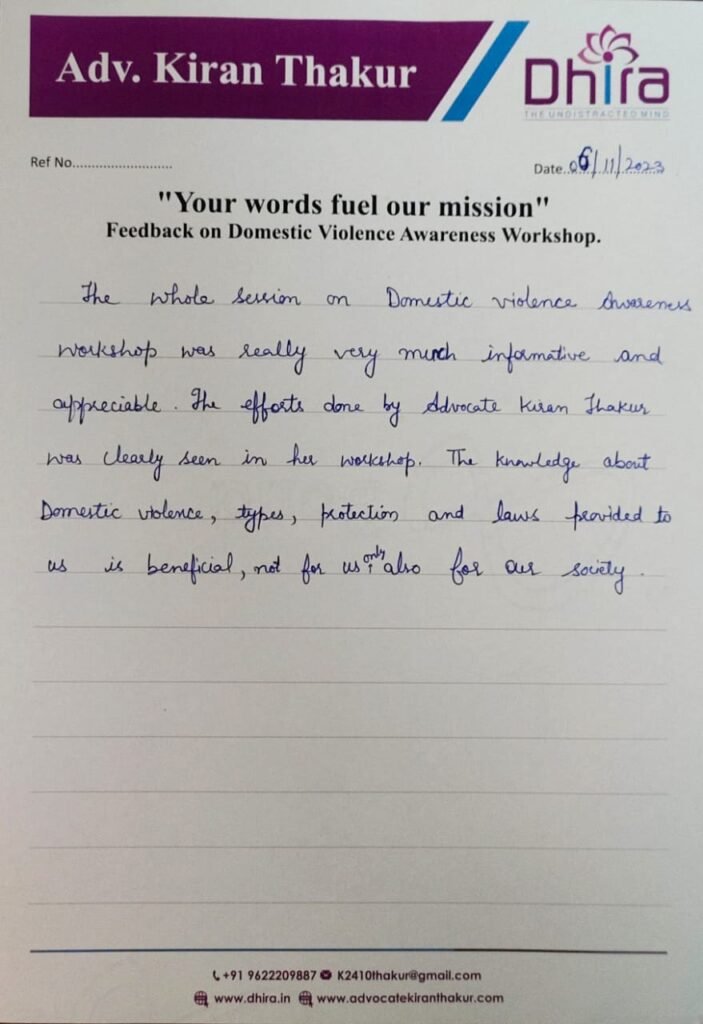 Adv. Kiran Thakur
Dhira
THE UNDISTRACTED MIND
Ref No..........................
Date..06/11/2023
"Your words fuel our mission"
Feedback on Domestic Violence Awareness Workshop.
The whole session on Domestic violence Awareness
workshop was really very much informative and
appreciable. The efforts done by Advocate Kiran Thakur
was clearly seen in her workshop. The knowledge about
Domestic violence, types, protection and laws provided to
us is beneficial, not for us only also for our society.
+91 9622209887 K2410thakur@gmail.com
www.dhira.in www.advocatekiranthakur.com